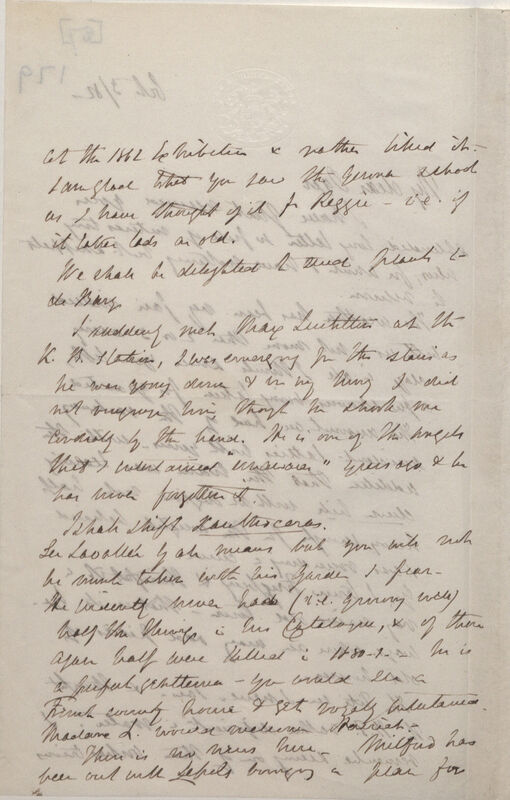 at the 1862 Exhibition & rather liked it –
I am glad that you saw the Geneva school
as I have thought of it for Reggie – i.e. if
it takes lads as old.
We shall be delighted to send plants to
de Bary
I suddenly met Max Leichtlin at the
K. B. Station, I was emerging from the stairs as
he was going down & in my hurry I did
not recognize him, though he shook me
cordially by the hand. He is one of the angels
that I entertained "unawares" years ago & he
has never forgotten it.
I shall shift Xanthoceras.
See Lavallée by all means but you will not
be much taken with his Garden I fear –
He evidently never had (i.e. growing well)
half the things in his Catalogue, & of these
again half were killed in 1880-1 – he is
a gentleman – you would see a
French country house & get royally entertained.
Madame L. would welcome Harriet –
There is no news here – Mitford has
been out with Lepels bringing a plan for